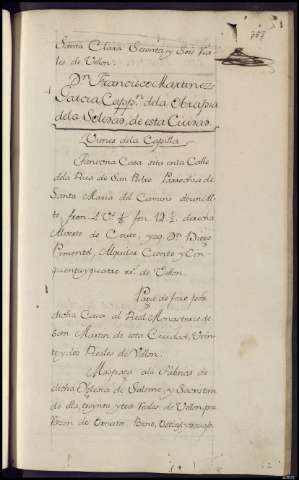 Santa Clara Sesenta y Seis Rea
les de Vellon.
Dn. Francisco Martinez
Garcia Cappn. dela Obrapia
dela Soledad, de esta Ciudad
Vienes dela Capilla
Una Casa sita en la Calle
dela Rua de San Pedro Parrochia de
Santa Maria del Camino
derecha
Alberto de y izq. Dn. Diego
Pimentel, Alquiler Ciento y Cin
quenta y quatro rs. de Vellon.
Paga de foro sobre
dicha Casa al Real Monasterio de
San Martin de esta Ciudad, Vein
te y dos Reales de Vellon.
Mas paga ala Fabrica de
dicha Yglesia de Salome, y Sacristan
de ella, treynta y tres reales de Vellon por
Razon de